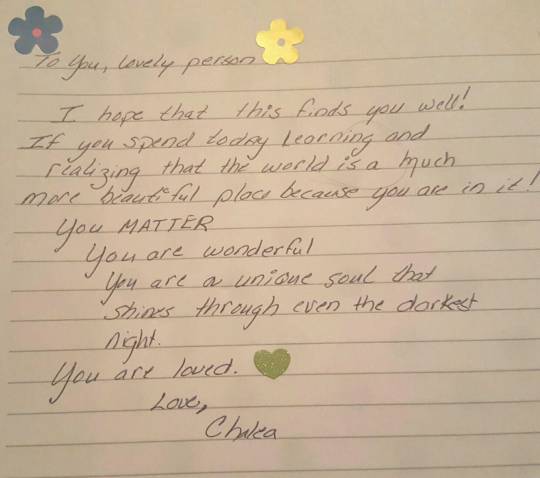 To You, lovely person
I hope that this finds you well!
If you spend today learning and
realizing that the world is a much
more beautiful place because you are in it!
You MATTER
You are wonderful
You are a unique soul that
shines through even the darkest
night.
You are loved.
Love,